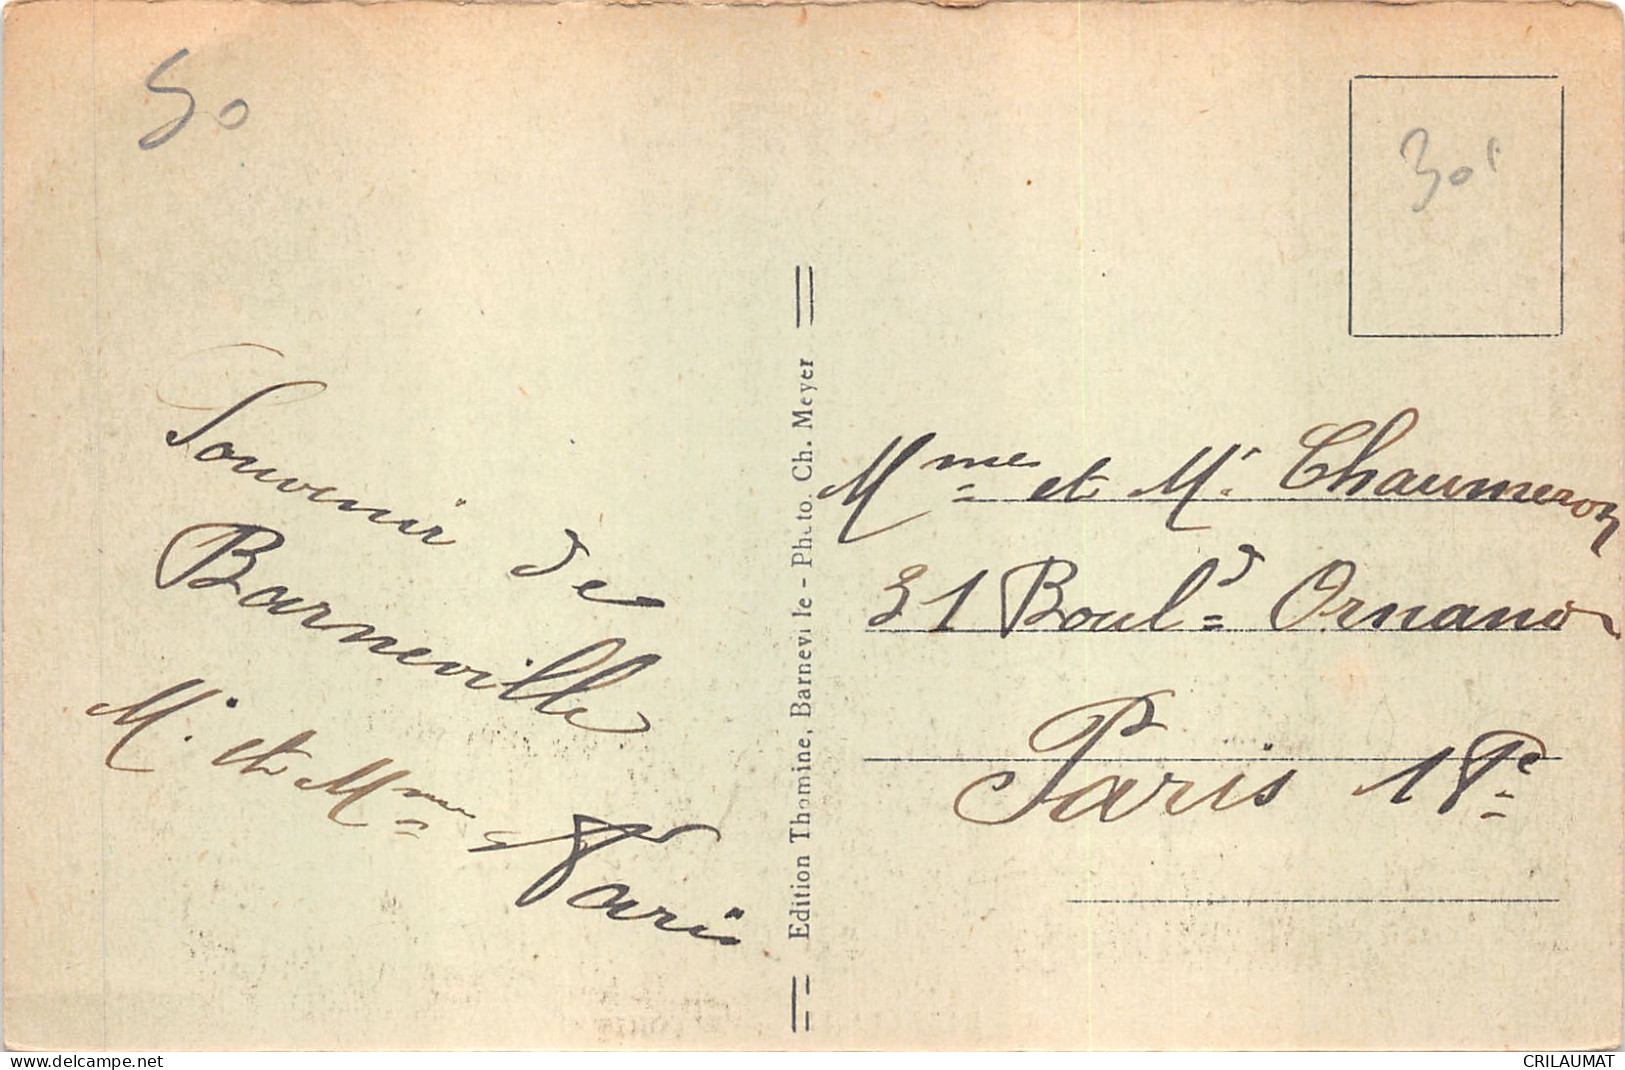 50
30
Souvenir de
Barneville
Mr et Mme Varis
Edition Thomine, Barneville - Photo. Ch. Meyer
Mme et Mr. Chaumeron
31 Bould Ornano
Paris
www.delcampe.net
CRILAUMAT